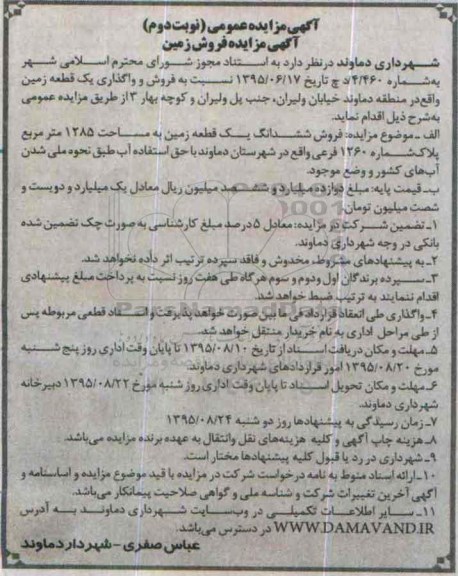 آگهی مزایده عمومی (نوبت دوم)
آگهی مزایده فروش زمین
شهرداری دماوند درنظر دارد به استناد مجوز شورای محترم اسلامی شهر
به‌شماره ۴/۴۶۰/د چ تاریخ ۱۳۹۵/۰۶/۱۷ نسبت به فروش و واگذاری یک قطعه زمین
واقع‌در منطقه دماوند خیابان ولیران، جنب پل ولیران و کوچه بهار ۳ از طریق مزایده عمومی
به‌شرح ذیل اقدام نماید.
الف ـ موضوع مزایده: فروش ششدانگ یک قطعه زمین به مساحت ۱۲۸۵ متر مربع
پلاک‌شماره ۱۲۶۰ فرعی واقع در شهرستان دماوند با حق استفاده آب طبق نحوه ملی شدن
آب‌های کشور و وضع موجود.
ب‌ـ قیمت پایه: مبلغ دوازده میلیارد و ششصد میلیون ریال معادل یک میلیارد و دویست و
شصت میلیون تومان.
۱ـ تضمین شرکت در مزایده: معادل ۵ درصد مبلغ کارشناسی به صورت چک تضمین شده
بانکی در وجه شهرداری دماوند.
۲ـ به پیشنهادهای مشروط، مخدوش و فاقد سپرده ترتیب اثر داده نخواهد شد.
۳ـ سپرده برندگان اول ودوم و سوم هرگاه طی هفت روز نسبت به پرداخت مبلغ پیشنهادی
اقدام ننمایند به ترتیب ضبط خواهد شد.
۴ـ واگذاری طی انعقاد قرارداد فی ما بین صورت خواهد پذیرفت و اسناد قطعی مربوطه پس
از طی مراحل اداری به نام خریدار منتقل خواهد شد.
۵ـ مهلت و مکان دریافت اسناد از تاریخ ۱۳۹۵/۰۸/۱۰ تا پایان وقت اداری روز پنج شنبه
مورخ ۱۳۹۵/۰۸/۲۰ امور قراردادهای شهرداری دماوند.
۶ـ مهلت و مکان تحویل اسناد تا پایان وقت اداری روز شنبه مورخ ۱۳۹۵/۰۸/۲۲ دبیرخانه
شهرداری دماوند.
۷ـ زمان رسیدگی به پیشنهادها روز دو شنبه ۱۳۹۵/۰۸/۲۴
۸ـ هزینه چاپ آگهی و کلیه هزینه‌های نقل وانتقال به عهده برنده مزایده می‌باشد.
۹ـ شهرداری در رد یا قبول کلیه پیشنهادها مختار است.
۱۰ـ ارائه اسناد منوط به نامه درخواست شرکت در مزایده با قید موضوع مزایده و اساسنامه و
آگهی آخرین تغییرات شرکت و شناسه ملی و گواهی صلاحیت پیمانکار می‌باشد.
۱۱ـ سایر اطلاعات تکمیلی در وب‌سایت شهرداری دماوند به آدرس
WWW.DAMAVAND.IR در دسترس می‌باشد.
عباس صفری - شهردار دماوند